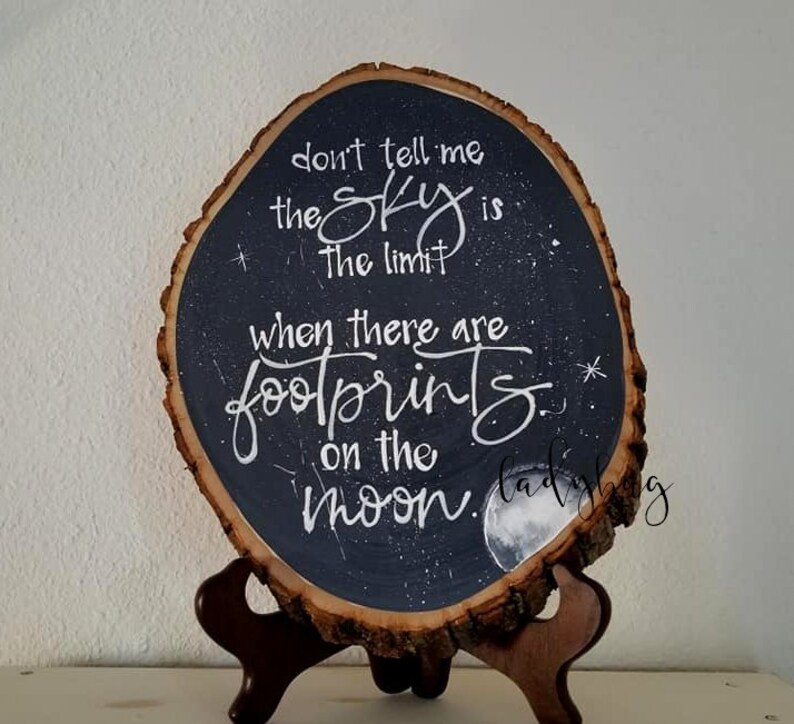 don't tell me
the sky is
the limit
when there are
footprints
on the
moon.
ladybug